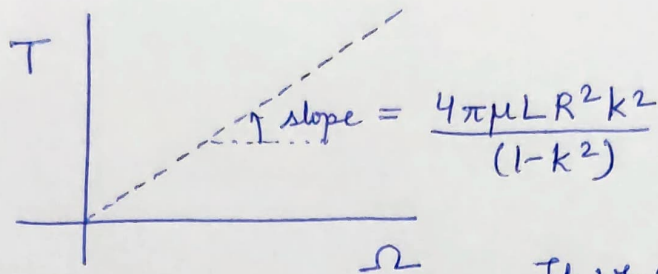 T
slope = 4πμLR²k² / (1-k²)
Ω